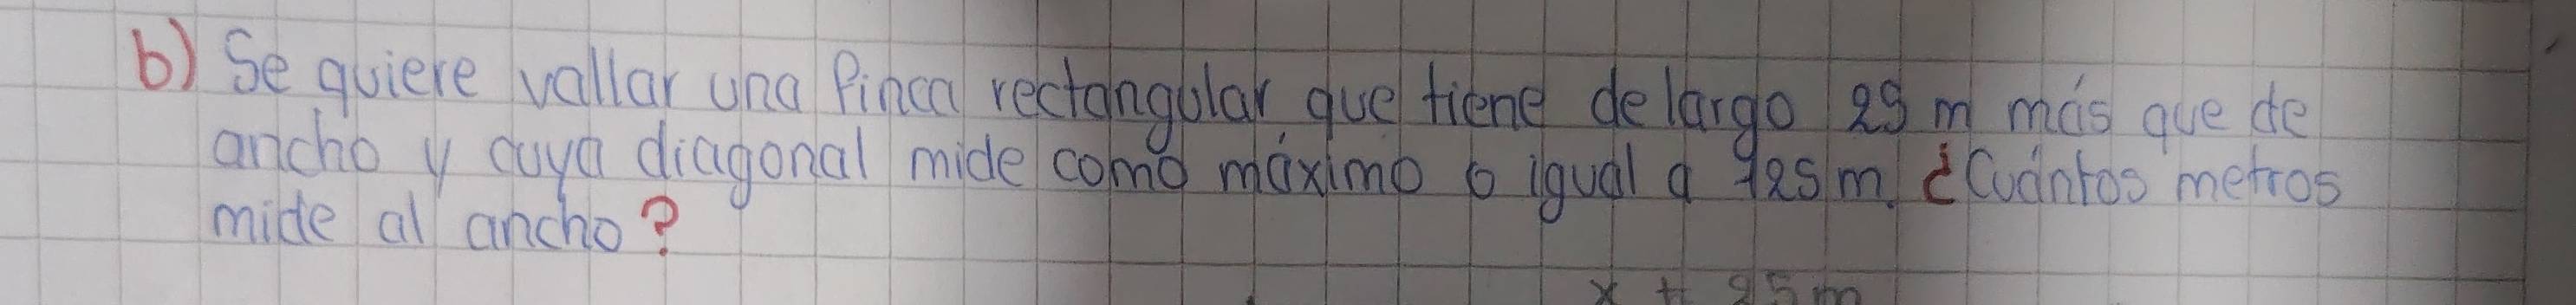 b) Se quiere vallar una finca rectangular que tiene de largo 25 m más que de
ancho y cuya diagonal mide como máximo o igual a 125 m. ¿Cuántos metros
mide al ancho?
x + 25 m